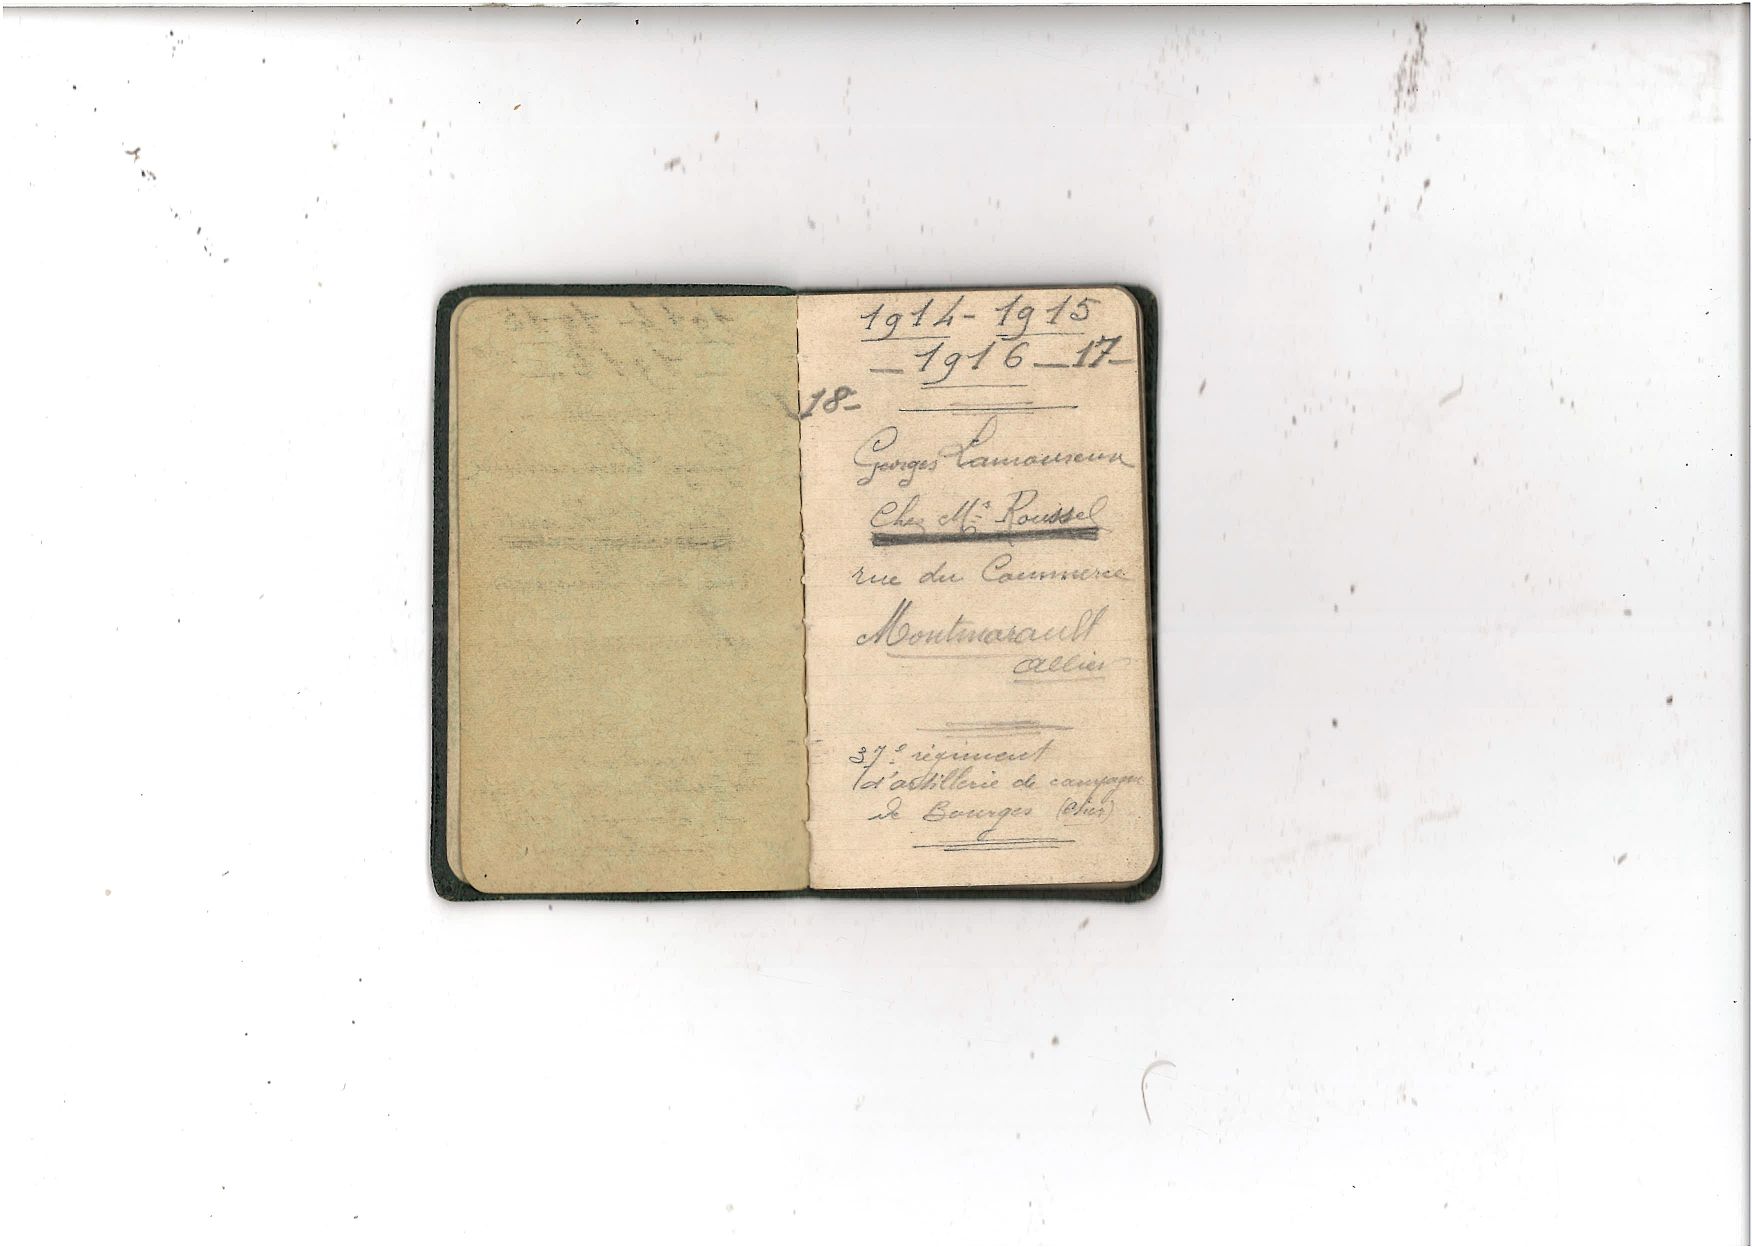 1914 - 1915
_ 1916 _ 17 _
18 -
Georges Lamoureux
Chez Mr Roussel
rue du Commerce
Montmarault
Allier
37e régiment
d'artillerie de campagne
de Bourges (Cher)